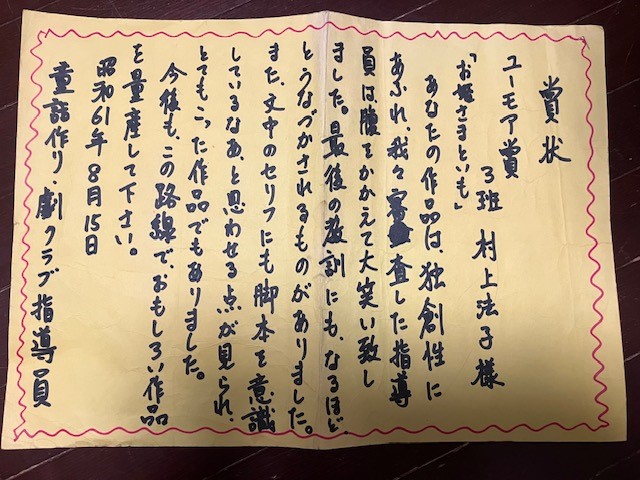 賞状
ユーモア賞
3班 村上法子様
「お姫さまといも」
あなたの作品は、独創性に
あふれ、我々審査した指導
員は腹をかかえて大笑い致し
ました。最後の教訓にも、なるほど
とうなづかされるものがありました。
また、文中のセリフにも脚本を意識
しているなあ、と思わせる点が見られ、
とてもこった作品でもありました。
今後も、この路線で、おもしろい作品
を量産して下さい。
昭和61年8月15日
童話作り・劇クラブ指導員